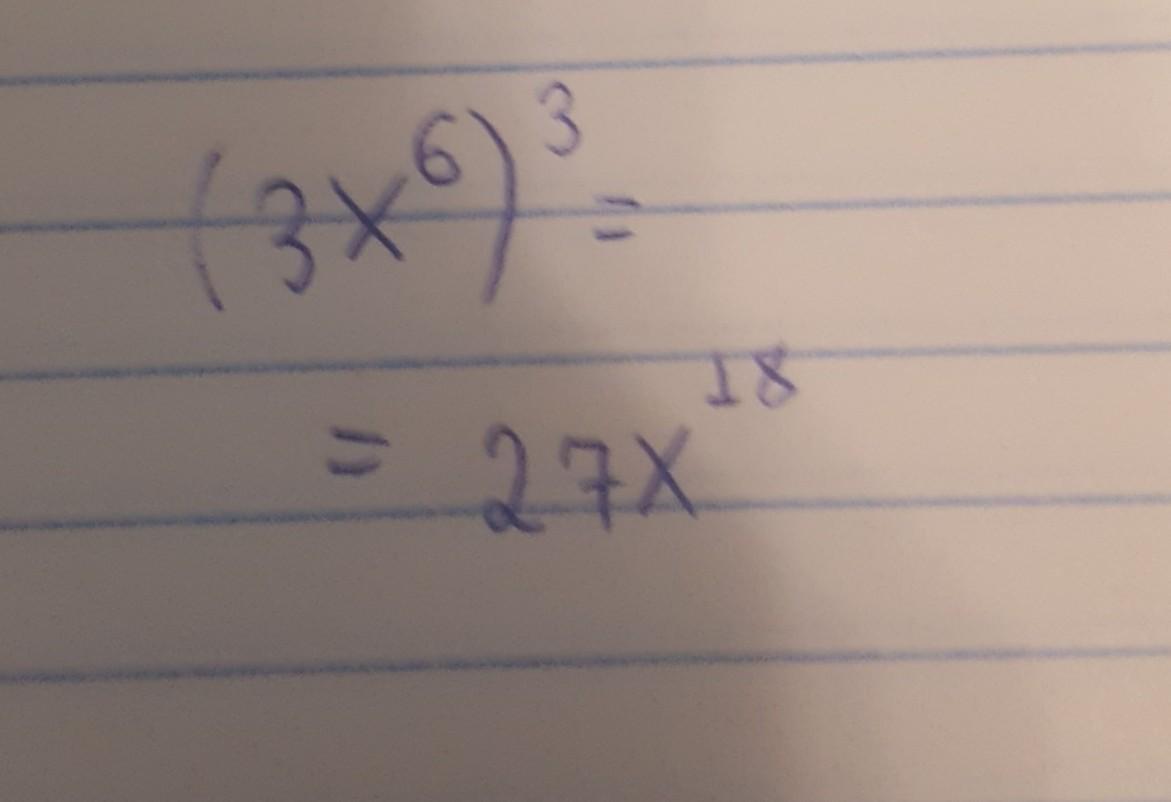 (3x⁶)³ =
= 27x¹⁸